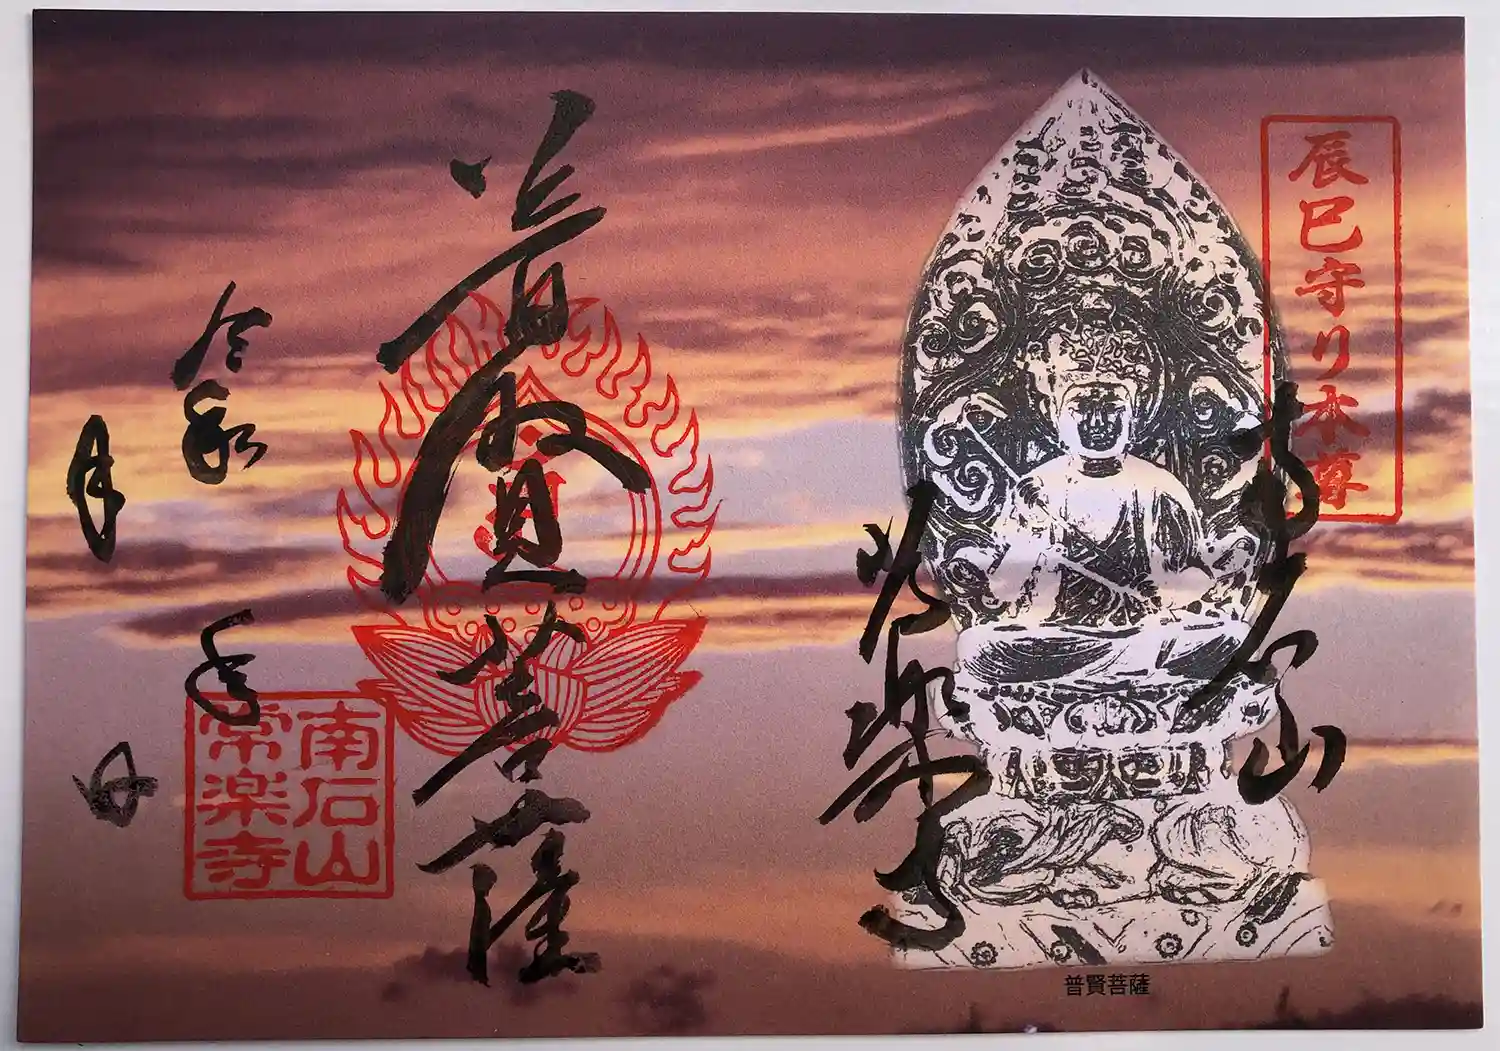 辰巳守り本尊
南石山
常楽寺
普賢菩薩
普賢菩薩
令和 年
月 日
南石山
常楽寺